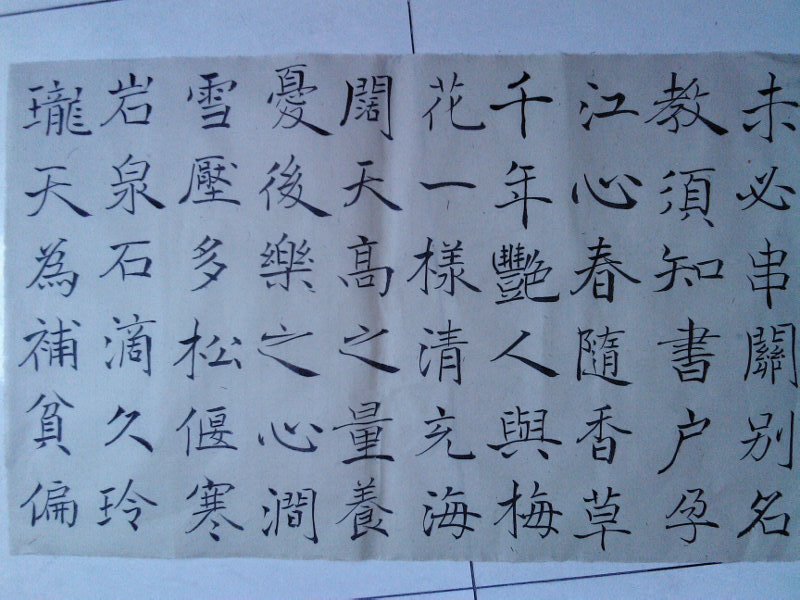 未必串關别名
教須知書户孕
江心春隨香草
千年艷人與梅
花一樣清充海
闊天高之量養
憂後樂之心澗
雪壓多松偃寒
岩泉石滴久玲
瓏天為補貧偏